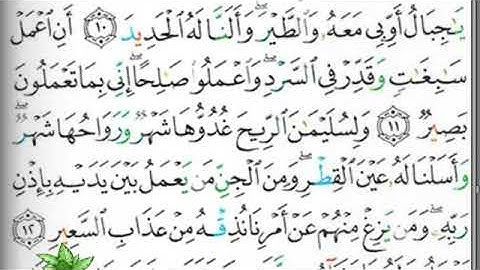 يَٰجِبَالُ أَوِّبِي مَعَهُۥ وَٱلطَّيْرَۖ وَأَلَنَّا لَهُ ٱلْحَدِيدَ ١٠ أَنِ ٱعْمَلْ
سَٰبِغَٰتٍ وَقَدِّرْ فِي ٱلسَّرْدِۖ وَٱعْمَلُوا۟ صَٰلِحًاۖ إِنِّي بِمَا تَعْمَلُونَ
بَصِيرٌ ١١ وَلِسُلَيْمَٰنَ ٱلرِّيحَ غُدُوُّهَا شَهْرٌ وَرَوَاحُهَا شَهْرٌۖ
وَأَسَلْنَا لَهُۥ عَيْنَ ٱلْقِطْرِۖ وَمِنَ ٱلْجِنِّ مَن يَعْمَلُ بَيْنَ يَدَيْهِ بِإِذْنِ
رَبِّهِۦۖ وَمَن يَزِغْ مِنْهُمْ عَنْ أَمْرِنَا نُذِقْهُ مِنْ عَذَابِ ٱلسَّعِيرِ ١٢